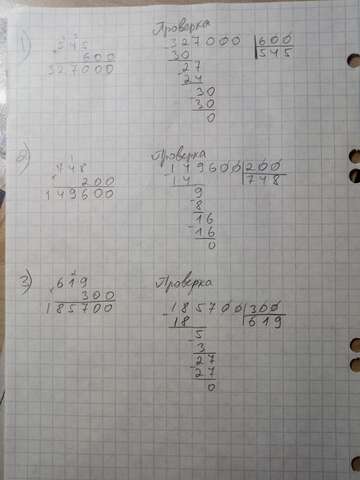 Проверка
1) 545
600
327000
327000 | 600
30 | 545
27
24
30
30
0
Проверка
2) 748
200
149600
149600 | 200
14 | 748
9
8
16
16
0
Проверка
3) 619
300
185700
185700 | 300
18 | 619
5
3
27
27
0